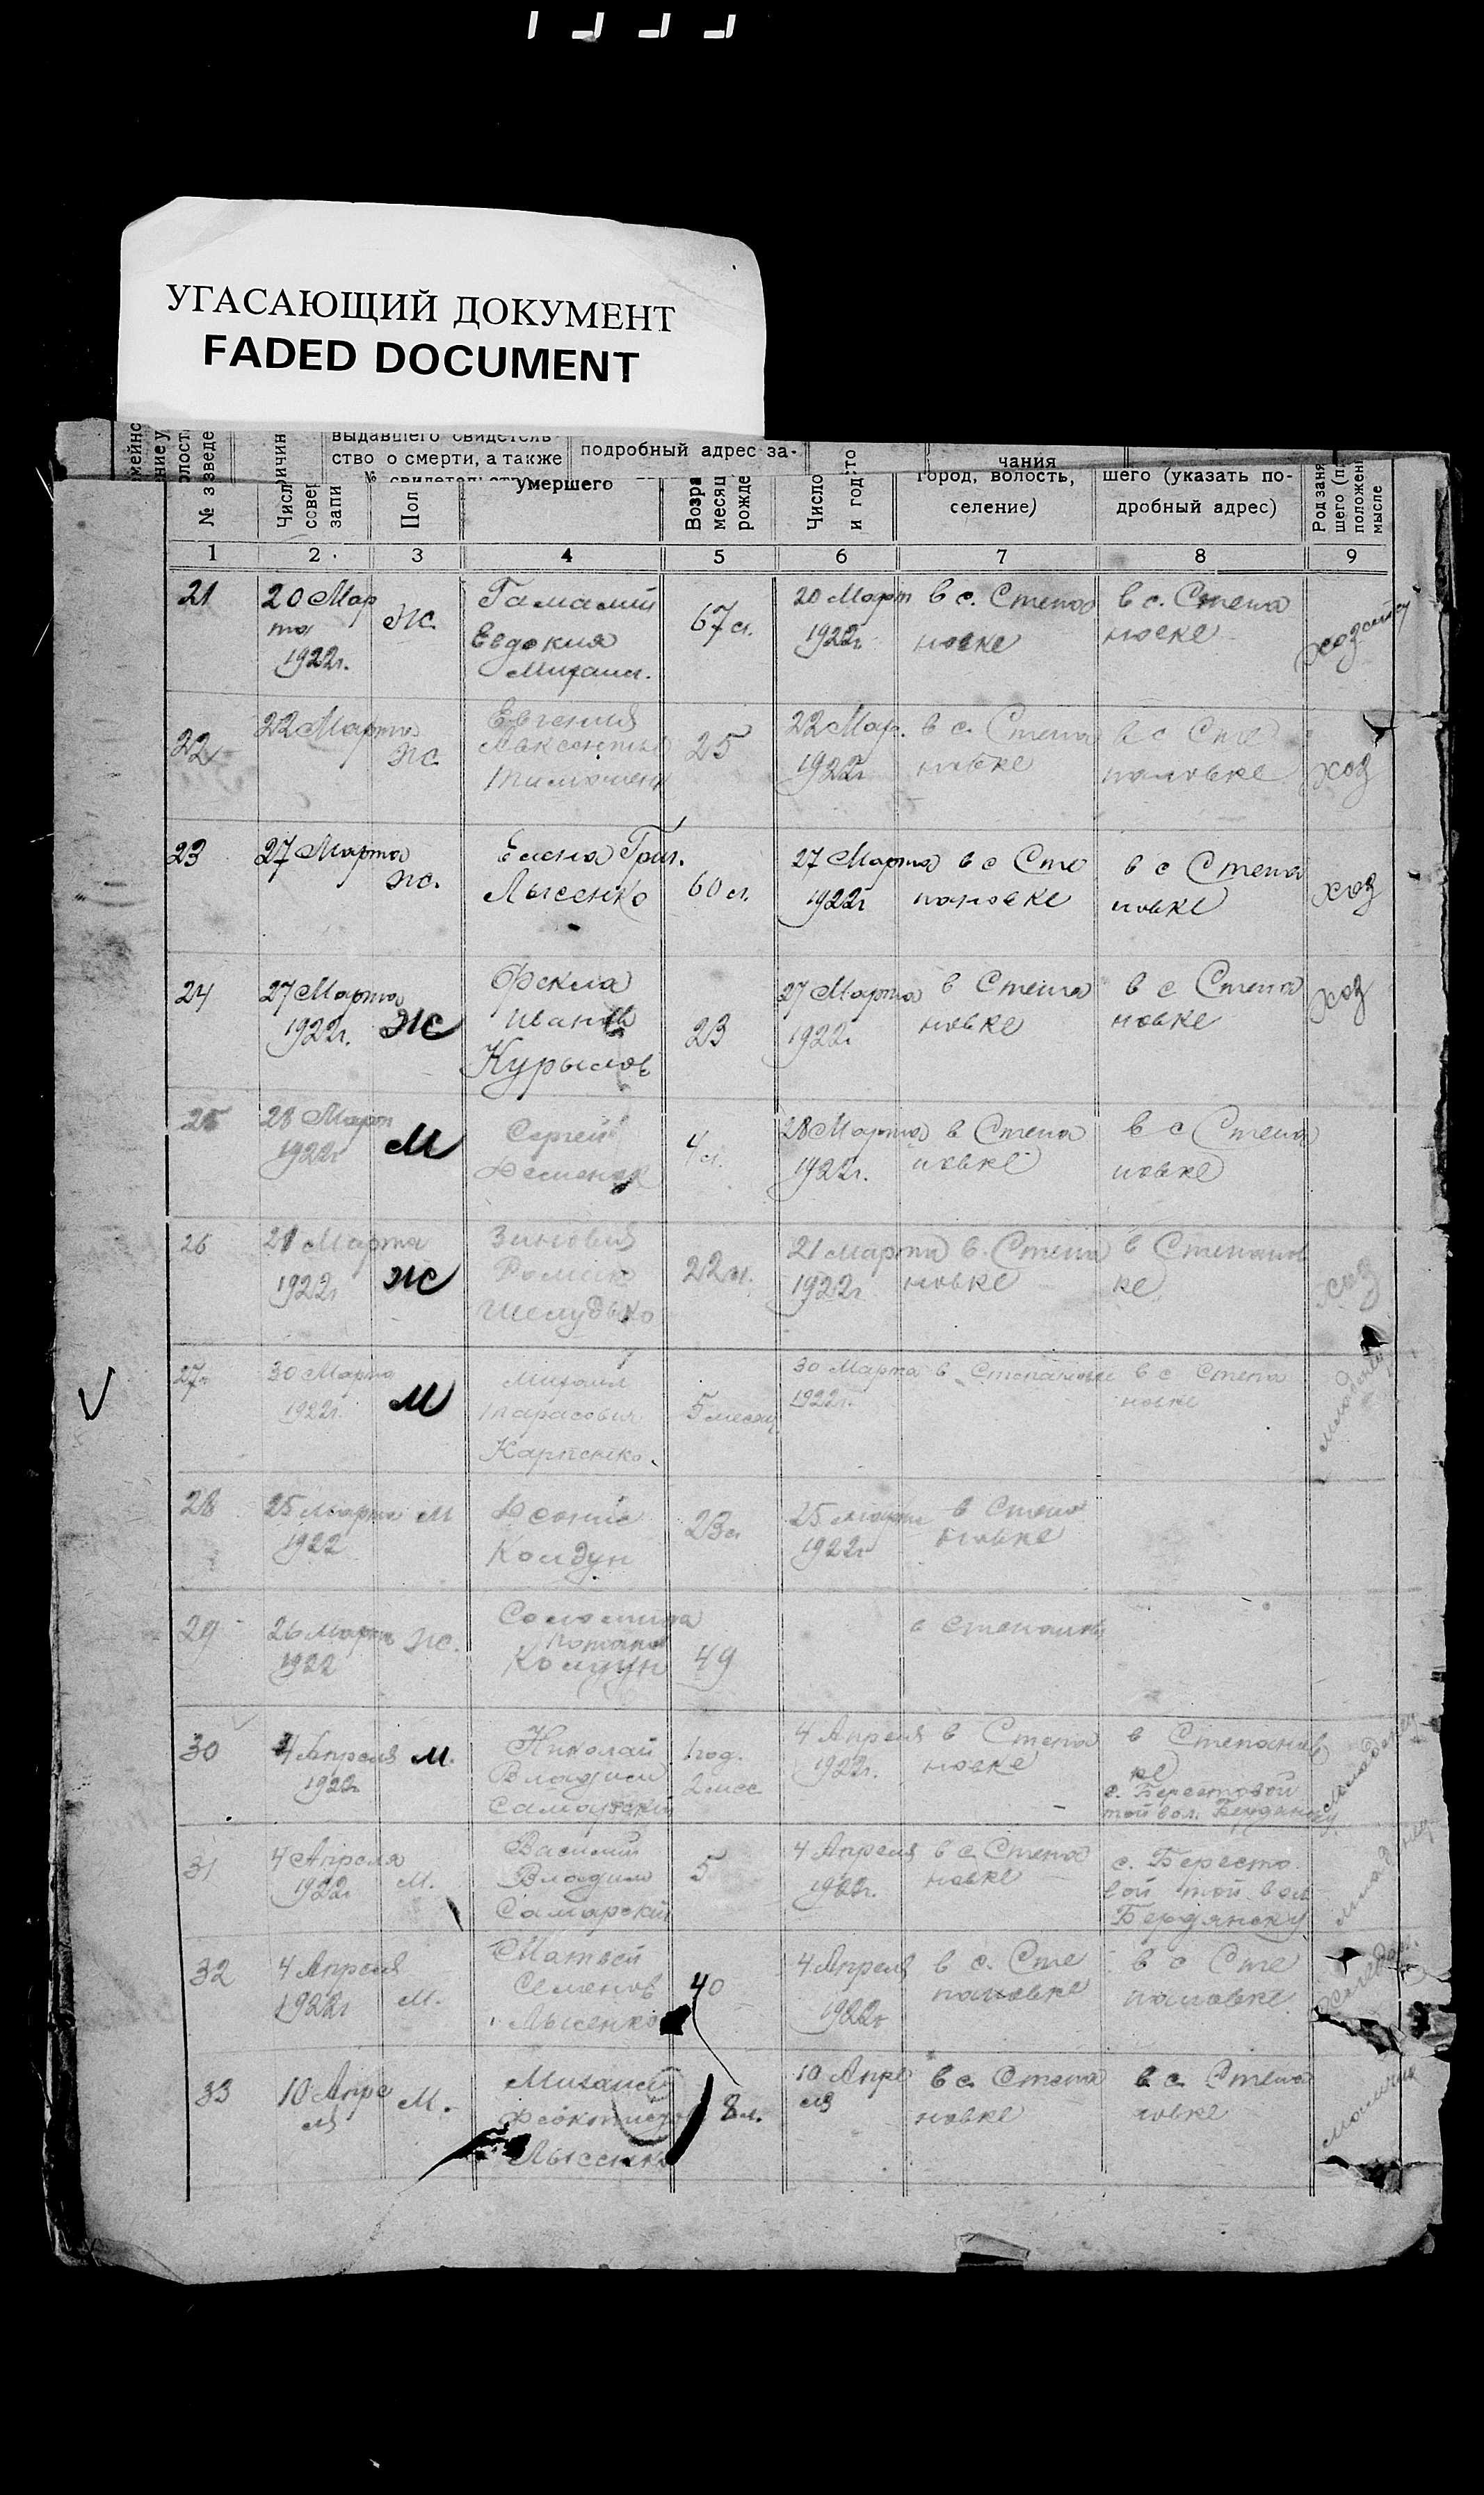 УГАСАЮЩИЙ ДОКУМЕНТ
FADED DOCUMENT
выдавшего свидетель-
ство о смерти, а также
подробный адрес за-
чания
№ з
Числ
совер
запи
Пол
умершего
Возра
месяц
рожде
Число
и год
город, волость,
селение)
шего (указать по-
дробный адрес)
Род заня
шего (п
положен
мысле
1 2 3 4 5 6 7 8 9
21 20 Мар
та
1922г. Ж. Гамалий
Евдокия
Михаил. 67 л. 20 Март
1922г. в с. Степа
новке в с. Степа
новке
22 22 Марта Ж. Евгения
Тимошен 25 22 Мар.
1922г в с. Степа
новке в с Сте
пановке хоз
23 27 Марта Ж. Елена Григ.
Лысенко 60 л. 27 Марта
1922г в с Сте
пановке в с Степа
новке хоз
24 27 Марта
1922г. Ж Фекла
Иванов
Курылов 23 27 Марта
1922г в Степа
новке в с Степа
новке хоз
25 28 Март
1922г М Сергей
4 л. 28 Марта
1922г. в Степа
новке в с Степа
новке
26 21 Марта
1922г Ж Зиновия
Роман
Шелудько 22 л. 21 марта
1922г. в. Степа
новке в Степанов
ке хоз
27 30 Марта
1922г. М Михаил
Тарасович
Карпенко. 5 месяц 30 Марта
1922г. в Степановке в с Степа
новке младенец
28 25 марта
1922 М Денис
Колдун 23 л 25 марта
1922г в Степа
новке
29 26 Марта
1922 Ж. Соломина
Потапов
Колдун 49 в Степановк
30 4 Апреля
1922г М. Николай
Владим
Самарский 1 год.
2 мес 4 Апреля
1922г. в Степа
новке в Степанов
ке
с. Берестовой
той вол. Бердянску.
31 4 Апреля
1922г М. Василий
Владим
Самарский 5 4 Апреля
1922г. в с Степа
новке с. Бересто
вой той вол
Бердянску
32 4 Апреля
1922г М. Матвей
Семенов
Лысенко 40 4 Апреля
1922г в с. Сте
пановке в с Сте
пановке
33 10 Апре
ля М. Михаил
Феоктистов
Лысенко 8 л. 10 Апре
ля в с. Степа
новке в с. Степа
новке